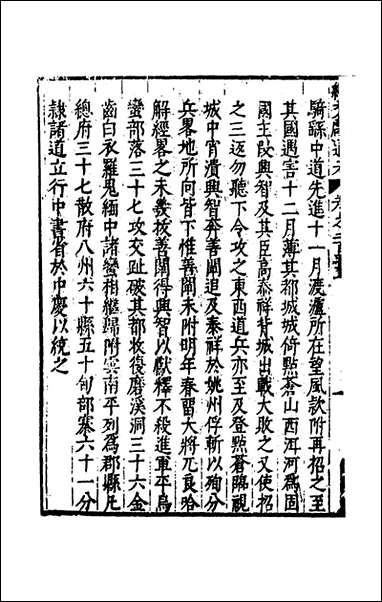 騎繇中道先進十一月渡瀘所在望風欵附再招之至
其國遇害十二月薄其都城城倚點蒼山西洱河爲固
國主段興智及其臣高泰祥背城出戰大敗之又使招
之三返勿聽下令攻之東西道兵亦至及登點蒼臨視
城中宵潰興智奔善闡追及泰祥於姚州俘斬以殉分
兵畧地所向皆下惟善闡未附明年春留大將兀良哈
觧經畧之未幾核善闡得興智以獻釋不殺進軍平烏
蠻部落三十七攻交趾破其都收復磨溪洞三十六金
齒白衣羅鬼緬中諸蠻相繼歸附雲南平列爲郡縣凡
總府三十七散府八州六十縣五十甸部寨六十一分
隷諸道立行中書省於中慶以統之